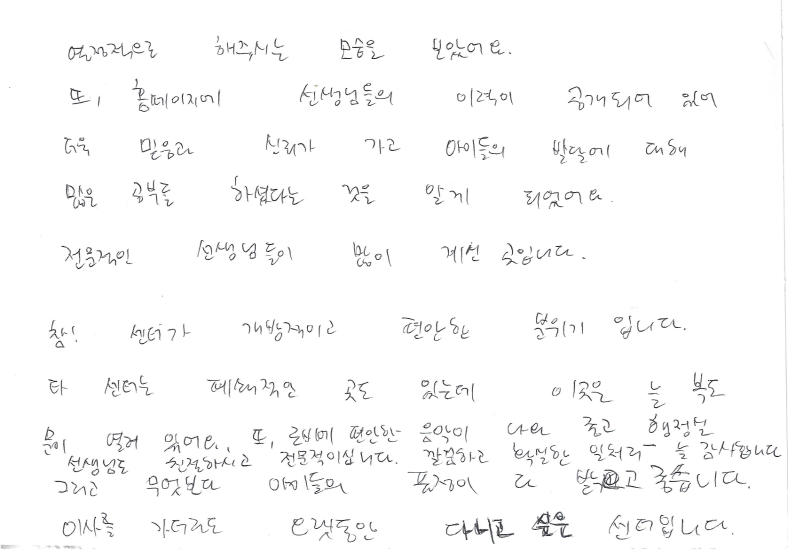 열정적으로 해주시는 모습을 보았어요.
또, 홈페이지에 선생님들의 이력이 공개되어 있어
더욱 믿음과 신뢰가 가고 아이들의 발달에 대해
많은 공부를 하셨다는 것을 알게 되었어요.
전문적인 선생님들이 많이 계신 곳입니다.
참! 센터가 개방적이고 편안한 분위기 입니다.
타 센터는 폐쇄적인 곳도 있는데 이곳은 늘 복도
문이 열려 있어요. 또, 로비에 편안한 음악이 나와 좋고 행정실
선생님도 친절하시고 전문적이십니다. 깔끔하고 확실한 일처리 늘 감사합니다
그리고 무엇보다 아이들의 표정이 다 밝고 좋습니다.
이사를 가더라도 오랫동안 다니고 싶은 센터입니다.